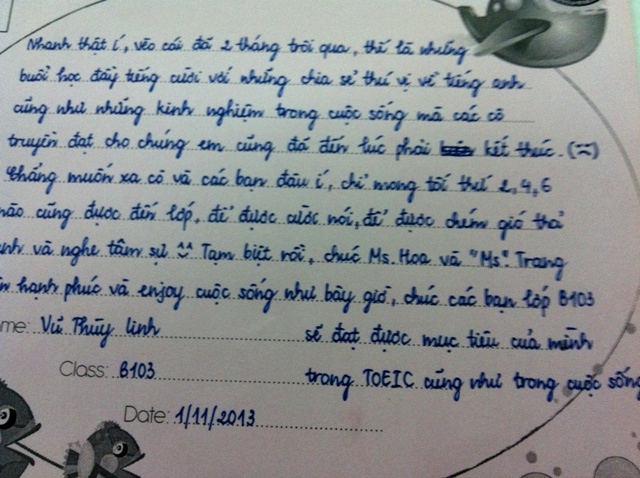 Nhanh thật í, vèo cái đã 2 tháng trôi qua, thế là những
buổi học đầy tiếng cười với những chia sẻ thú vị về tiếng anh
cũng như những kinh nghiệm trong cuộc sống mà các cô
truyền đạt cho chúng em cũng đã đến lúc phải kết thúc. (:~)
Chẳng muốn xa cô và các bạn đâu í, chỉ mong tối thứ 2, 4, 6
nào cũng được đến lớp, để được cười nói, để được chém gió thả
và nghe tâm sự ^^ Tạm biệt rồi, chúc Ms. Hoa và "Ms". Trang
hạnh phúc và enjoy cuộc sống như bây giờ, chúc các bạn lớp B103
me: Vũ Thùy Linh sẽ đạt được mục tiêu của mình
Class: B103 trong TOEIC cũng như trong cuộc sống
Date: 1/11/2013